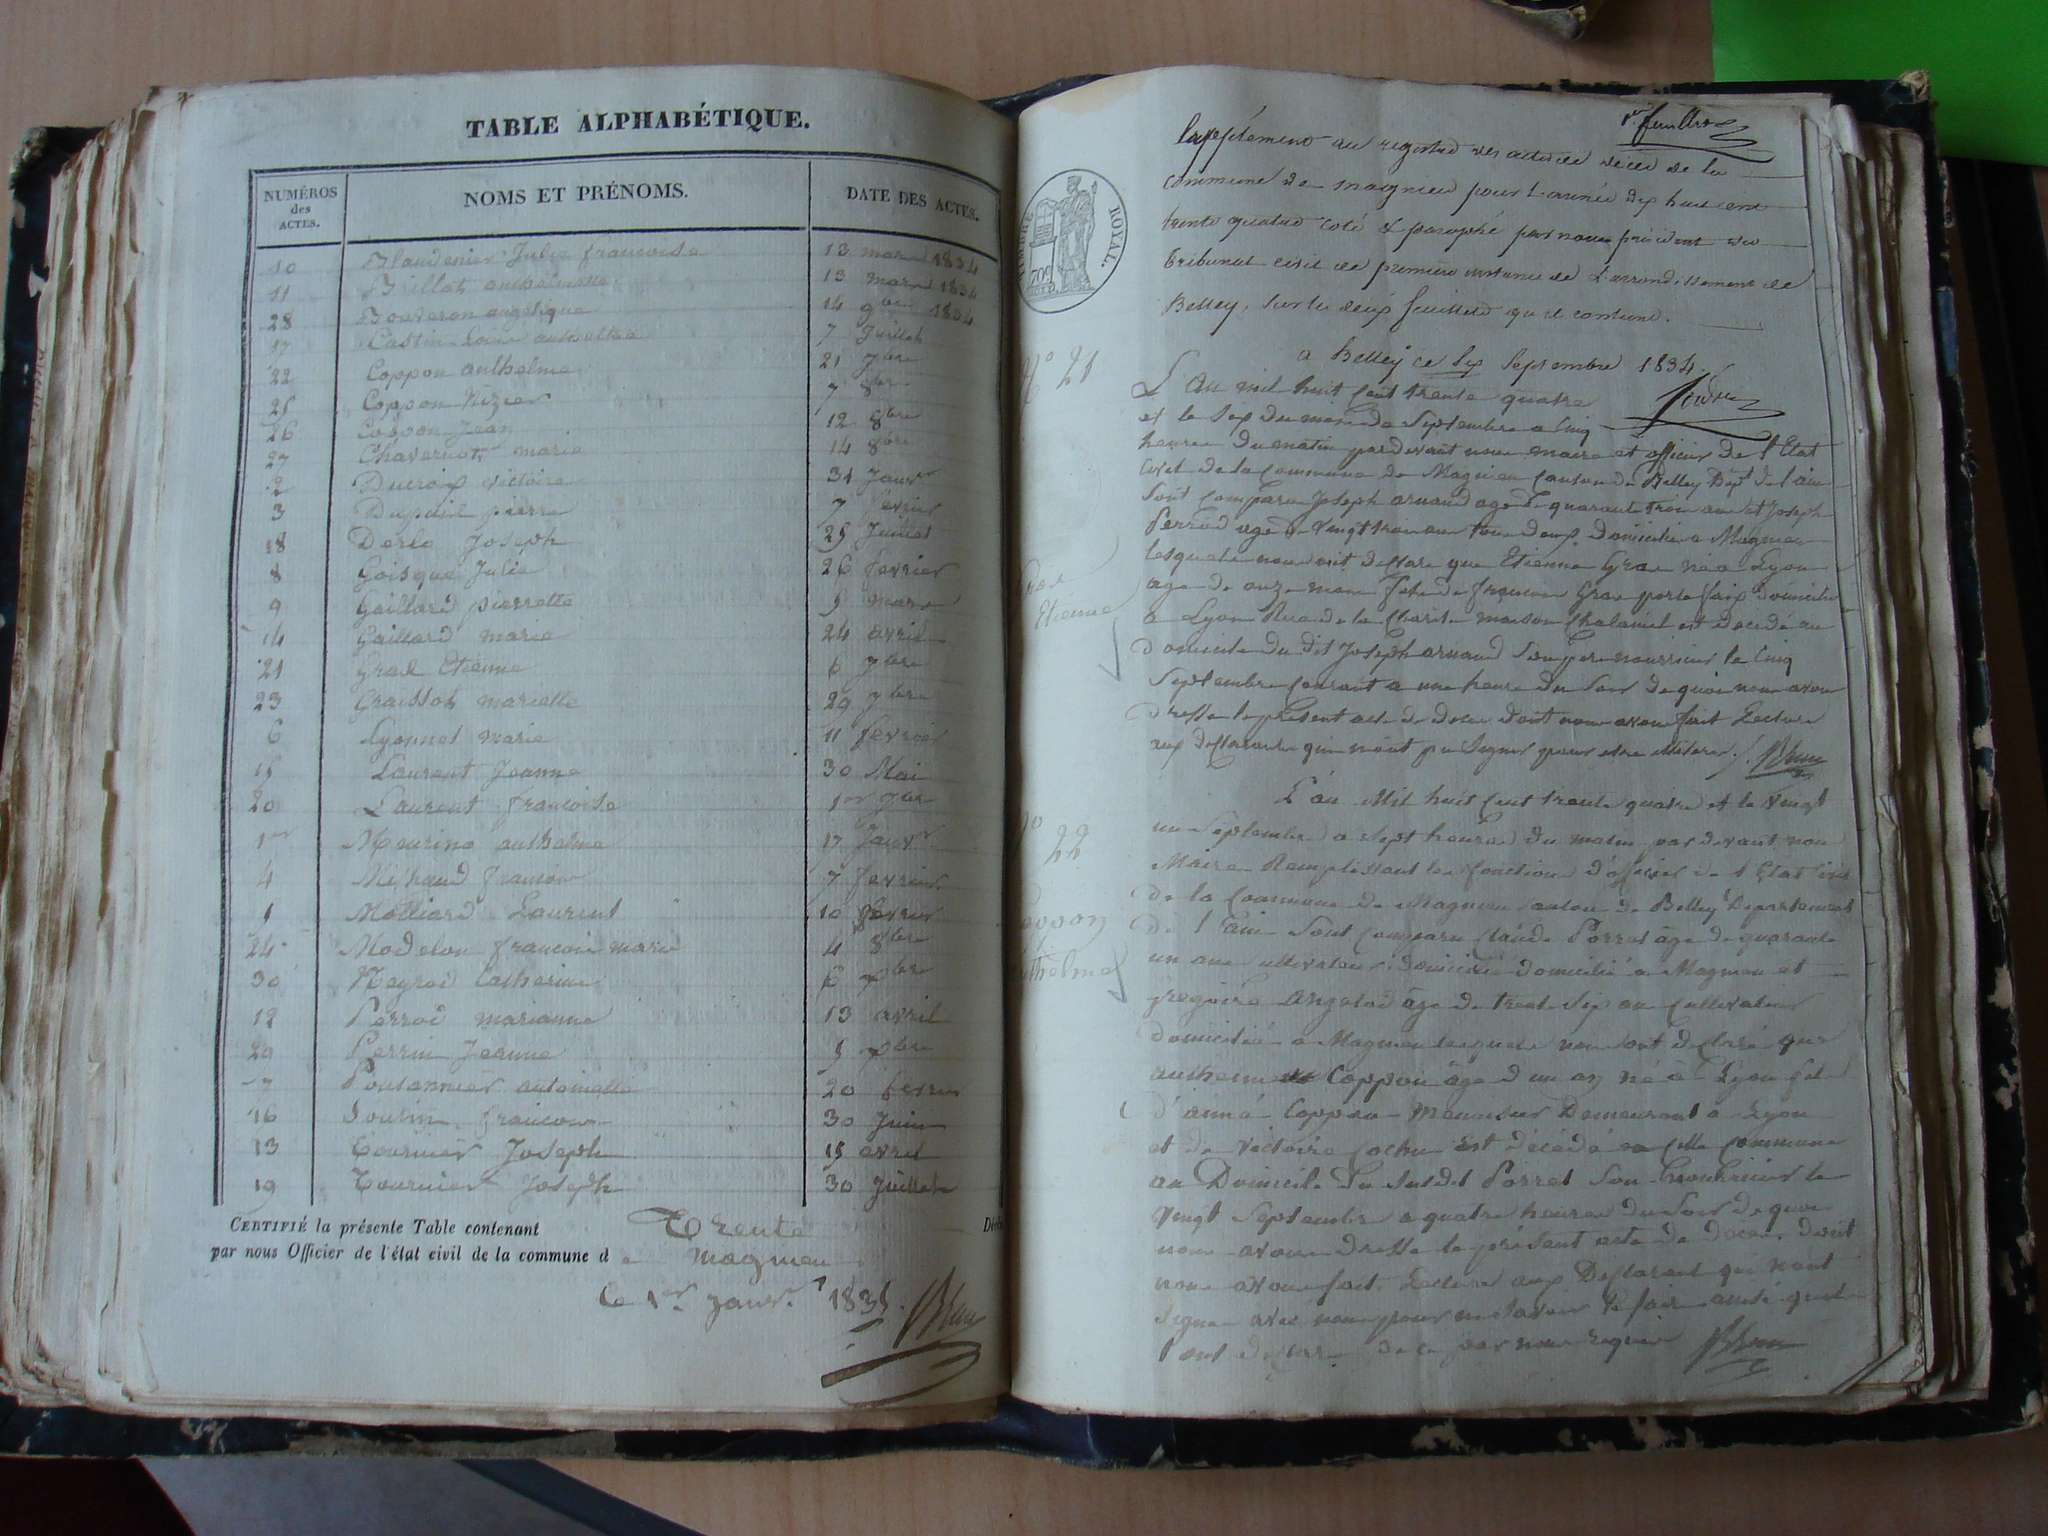 TABLE ALPHABÉTIQUE.
NUMÉROS des ACTES. NOMS ET PRÉNOMS. DATE DES ACTES.
10 Julie francoise 13 mars 1834
11 Billot anthelmette 13 mars 1834
28 Bouveron angélique 14 9bre 1834
17 Castin 7 Juillet
22 Coppon anthelme 21 7bre
25 Coppon Nizier 7 8bre
26 Coppon Jean 12 8bre
27 marie 14 8bre
2 Ducroix victoire 31 Janvr
3 Dupuis pierre 7 fevrier
18 Derlo Joseph 25 Juillet
8 Goisque Julie 26 fevrier
9 Gaillard pierrette 5 mars
14 Gaillard marie 24 avril
21 Gras Etienne 6 7bre
23 Graissot mariette 29 7bre
6 Lyonnet marie 11 fevrier
15 Laurent Jeanne 30 Mai
20 Laurent francoise 1er 7bre
1er anthelme 17 Janvr
4 Michaud francois 7 fevrier
5 Molliard Laurent 10 fevrier
24 Modelon francois marie 4 8bre
30 Catherine 6 xbre
12 Perrod marianne 13 avril
29 Perrin Jeanne 5 xbre
7 antoinette 20 fevrier
16 francois 30 Juin
13 Tournier Joseph 15 avril
19 Tournier Joseph 30 Juillet
CERTIFIÉ la présente Table contenant Trente
par nous Officier de l'état civil de la commune d e magnieu
le 1er Janvr 1835. Blum
1er feuillet
Supplément au registre des actes de décès de la
commune de magnieu pour l'année dix huit cent
trente quatre coté & paraphé par nous président du
tribunal civil de première instance de l'arrondissement de
Belley, sur les deux feuillets qu'il contient.
TIMBRE ROYAL.
70c
a Belley ce six Septembre 1834.
No 21
L'an mil huit cent trente quatre
et le six du mois de Septembre a cinq
heures du matin pardevant nous maire et officier de l'Etat
Civil de la commune de Magnieu canton de Belley Dept de l'ain
sont comparu Joseph arnaud agé de quarante trois ans et Joseph
Perrod agé de vingt trois ans tous deux domicilié a Magnieu
lesquels nous ont déclaré que Etienne Gras né a Lyon
agé de onze mois fils de francois Gras porte faix domicilié
Gras
Etienne
a Lyon Rue de la Charité maison Chalamel est décédé au
domicile du dit Joseph arnaud son pere nourricier le cinq
Septembre courant a une heure du soir de quoi nous avons
dressé le présent acte de décès dont nous avons fait lecture
aux déclarants qui n'ont pu signer pour etre illiteré. Blum
L'an Mil huit cent trente quatre et le vingt
No 22
un Septembre a sept heures du matin par devant nous
Maire Remplissant les fonctions d'officier de l'Etat civil
de la Commune de Magnieu canton de Belley Département
Coppon
de l'Ain sont comparu Claude Perrod âgé de quarante
un ans cultivateur domicilié a Magnieu et
anthelme
gregoire âgé de trente six ans cultivateur
domicilié a Magnieu lesquels nous ont déclaré que
anthelme Coppon âgé d'un an né a Lyon fils
d'anné Coppon Menuisier Demeurant a Lyon
et de victoire Cochu est décédé en cette commune
au Domicile du susdit Perrod son nourricier le
vingt Septembre a quatre heures du soir de quoi
nous avons dressé le présent acte de décès, dont
nous avons fait lecture aux Déclarant qui n'ont
signé avec nous pour ne savoir le faire ainsi qu'il
l'ont déclaré de ce par nous requis Blum